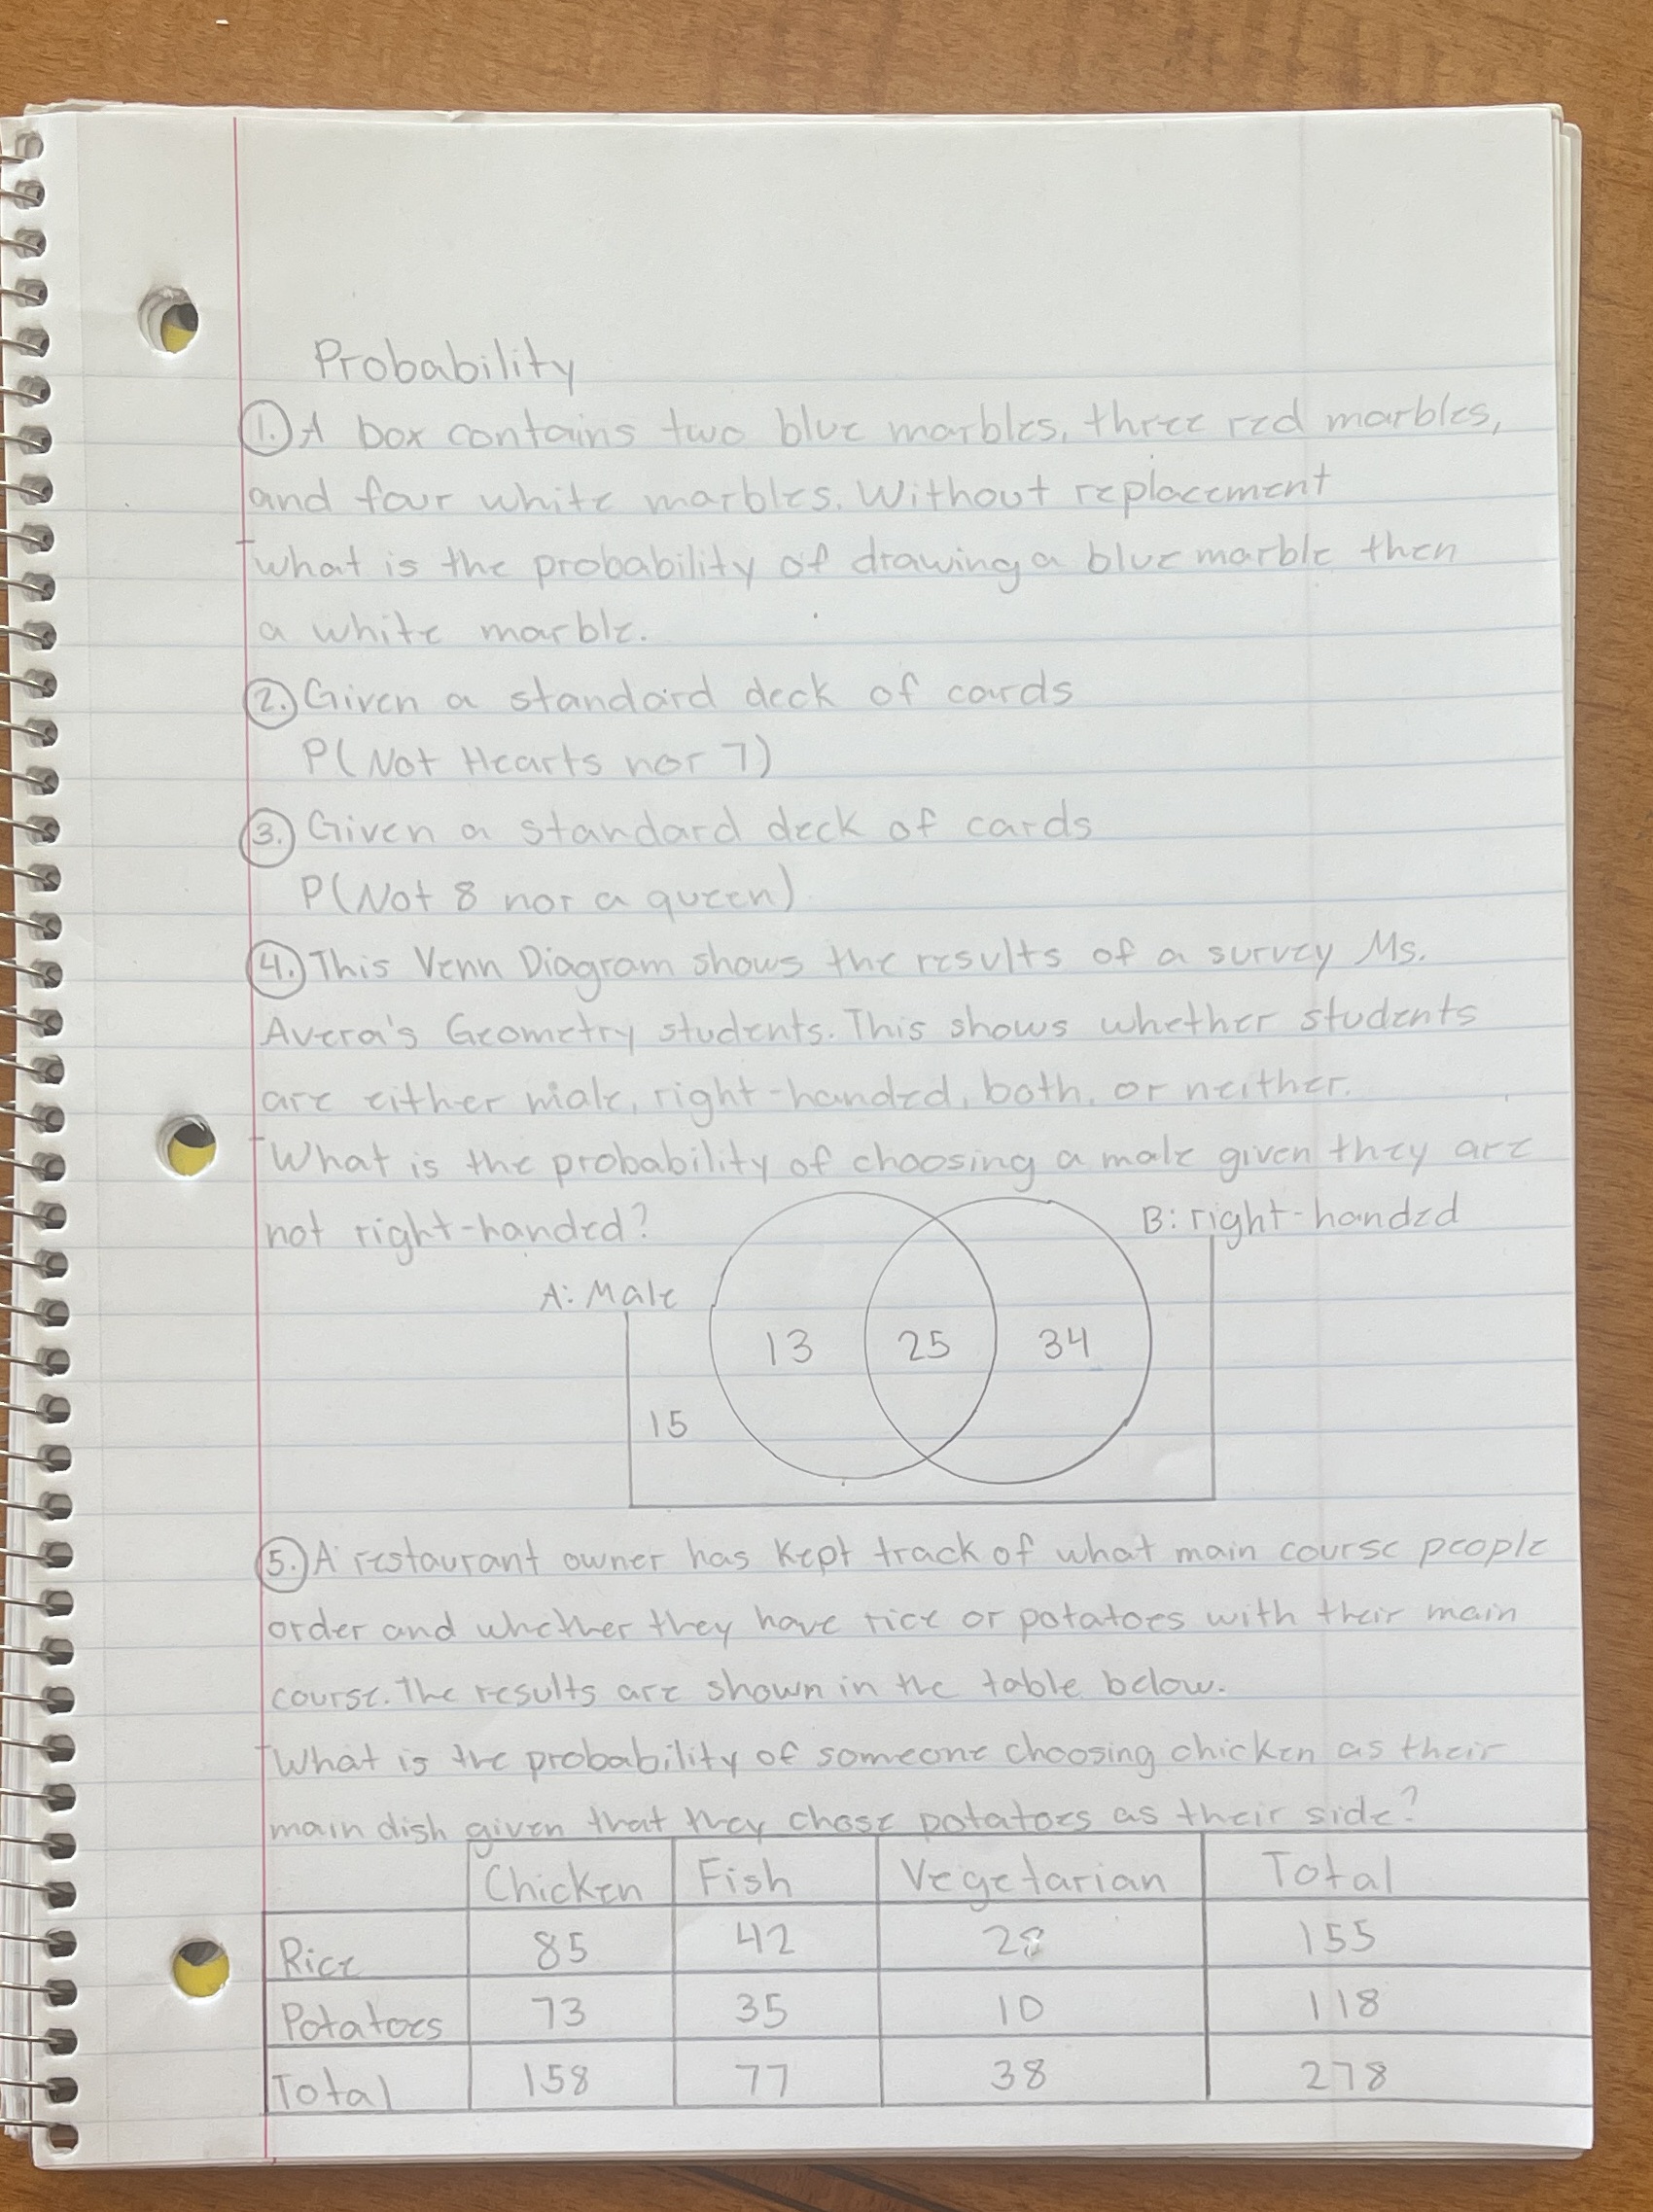 Probability
1. A box contains two blue marbles, three red marbles,
and four white marbles. Without replacement
what is the probability of drawing a blue marble then
a white marble.
2. Given a standard deck of cards
P(Not Hearts nor 7)
3. Given a standard deck of cards
P(Not 8 nor a queen)
4. This Venn Diagram shows the results of a survey Ms.
Avera's Geometry students. This shows whether students
are either male, right-handed, both, or neither.
What is the probability of choosing a male given they are
not right-handed?
B: right-handed
A: Male
13 25 34
15
5. A restaurant owner has kept track of what main course people
order and whether they have rice or potatoes with their main
course. The results are shown in the table below.
What is the probability of someone choosing chicken as their
main dish given that they chose potatoes as their side?
Chicken Fish Vegetarian Total
Rice 85 42 28 155
Potatoes 73 35 10 118
Total 158 77 38 278